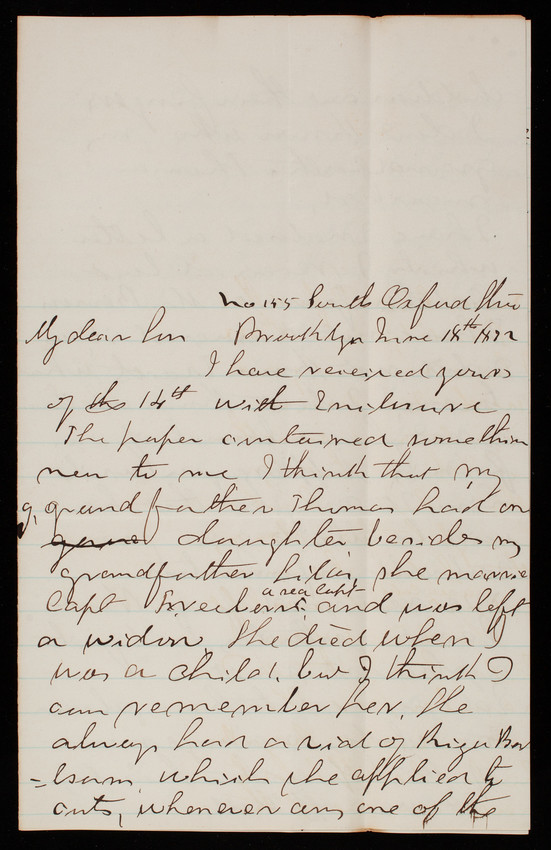 No 155 South Oxford Stre
My dear Son Brooklyn June 18th 1872
I have received yours
of the 14th with Inclosure
The paper contained somethin
new to me I think that my
g, grandfather Thomas had on
daughter besides my
grandfather Silas, she marrie
a sea capt
Capt and was left
a widow, She died when I
was a child, but I think I
can remember her. She
always had a vial of Riga Bal
=lsam, which she applied to
cuts, whenever any one of the